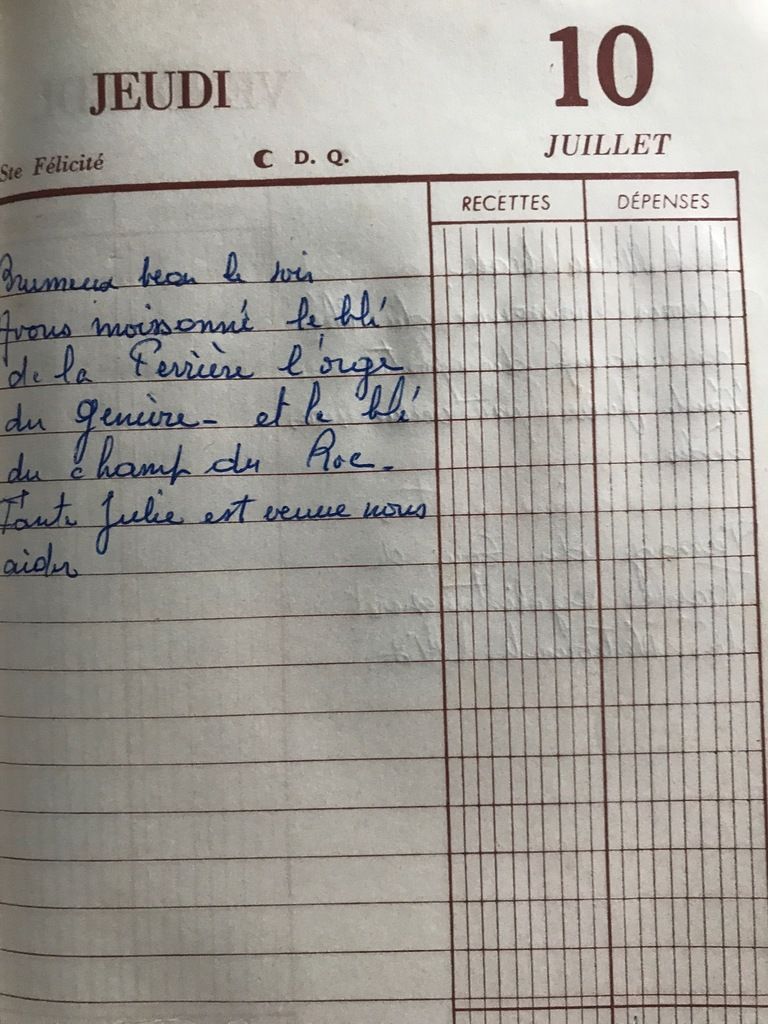 JEUDI
10
JUILLET
Ste Félicité
D. Q.
RECETTES
DÉPENSES
Brumeux beau le soir
Avons moissonné le blé
de la Ferrière l'orge
du genièvre - et le blé
du champ du Roc.
Tante Julie est venue nous
aider